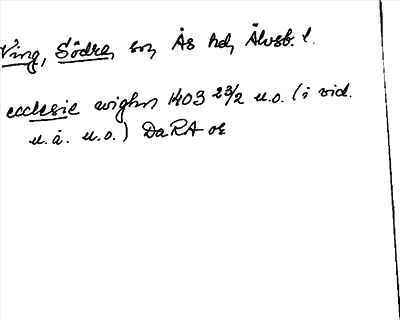 Ving, Södra, sn, Ås hd, Älvsb. l.
ecclesie wighn 1403 23/2 u.o. (i vid.
u.å. u.o.) DaRA or